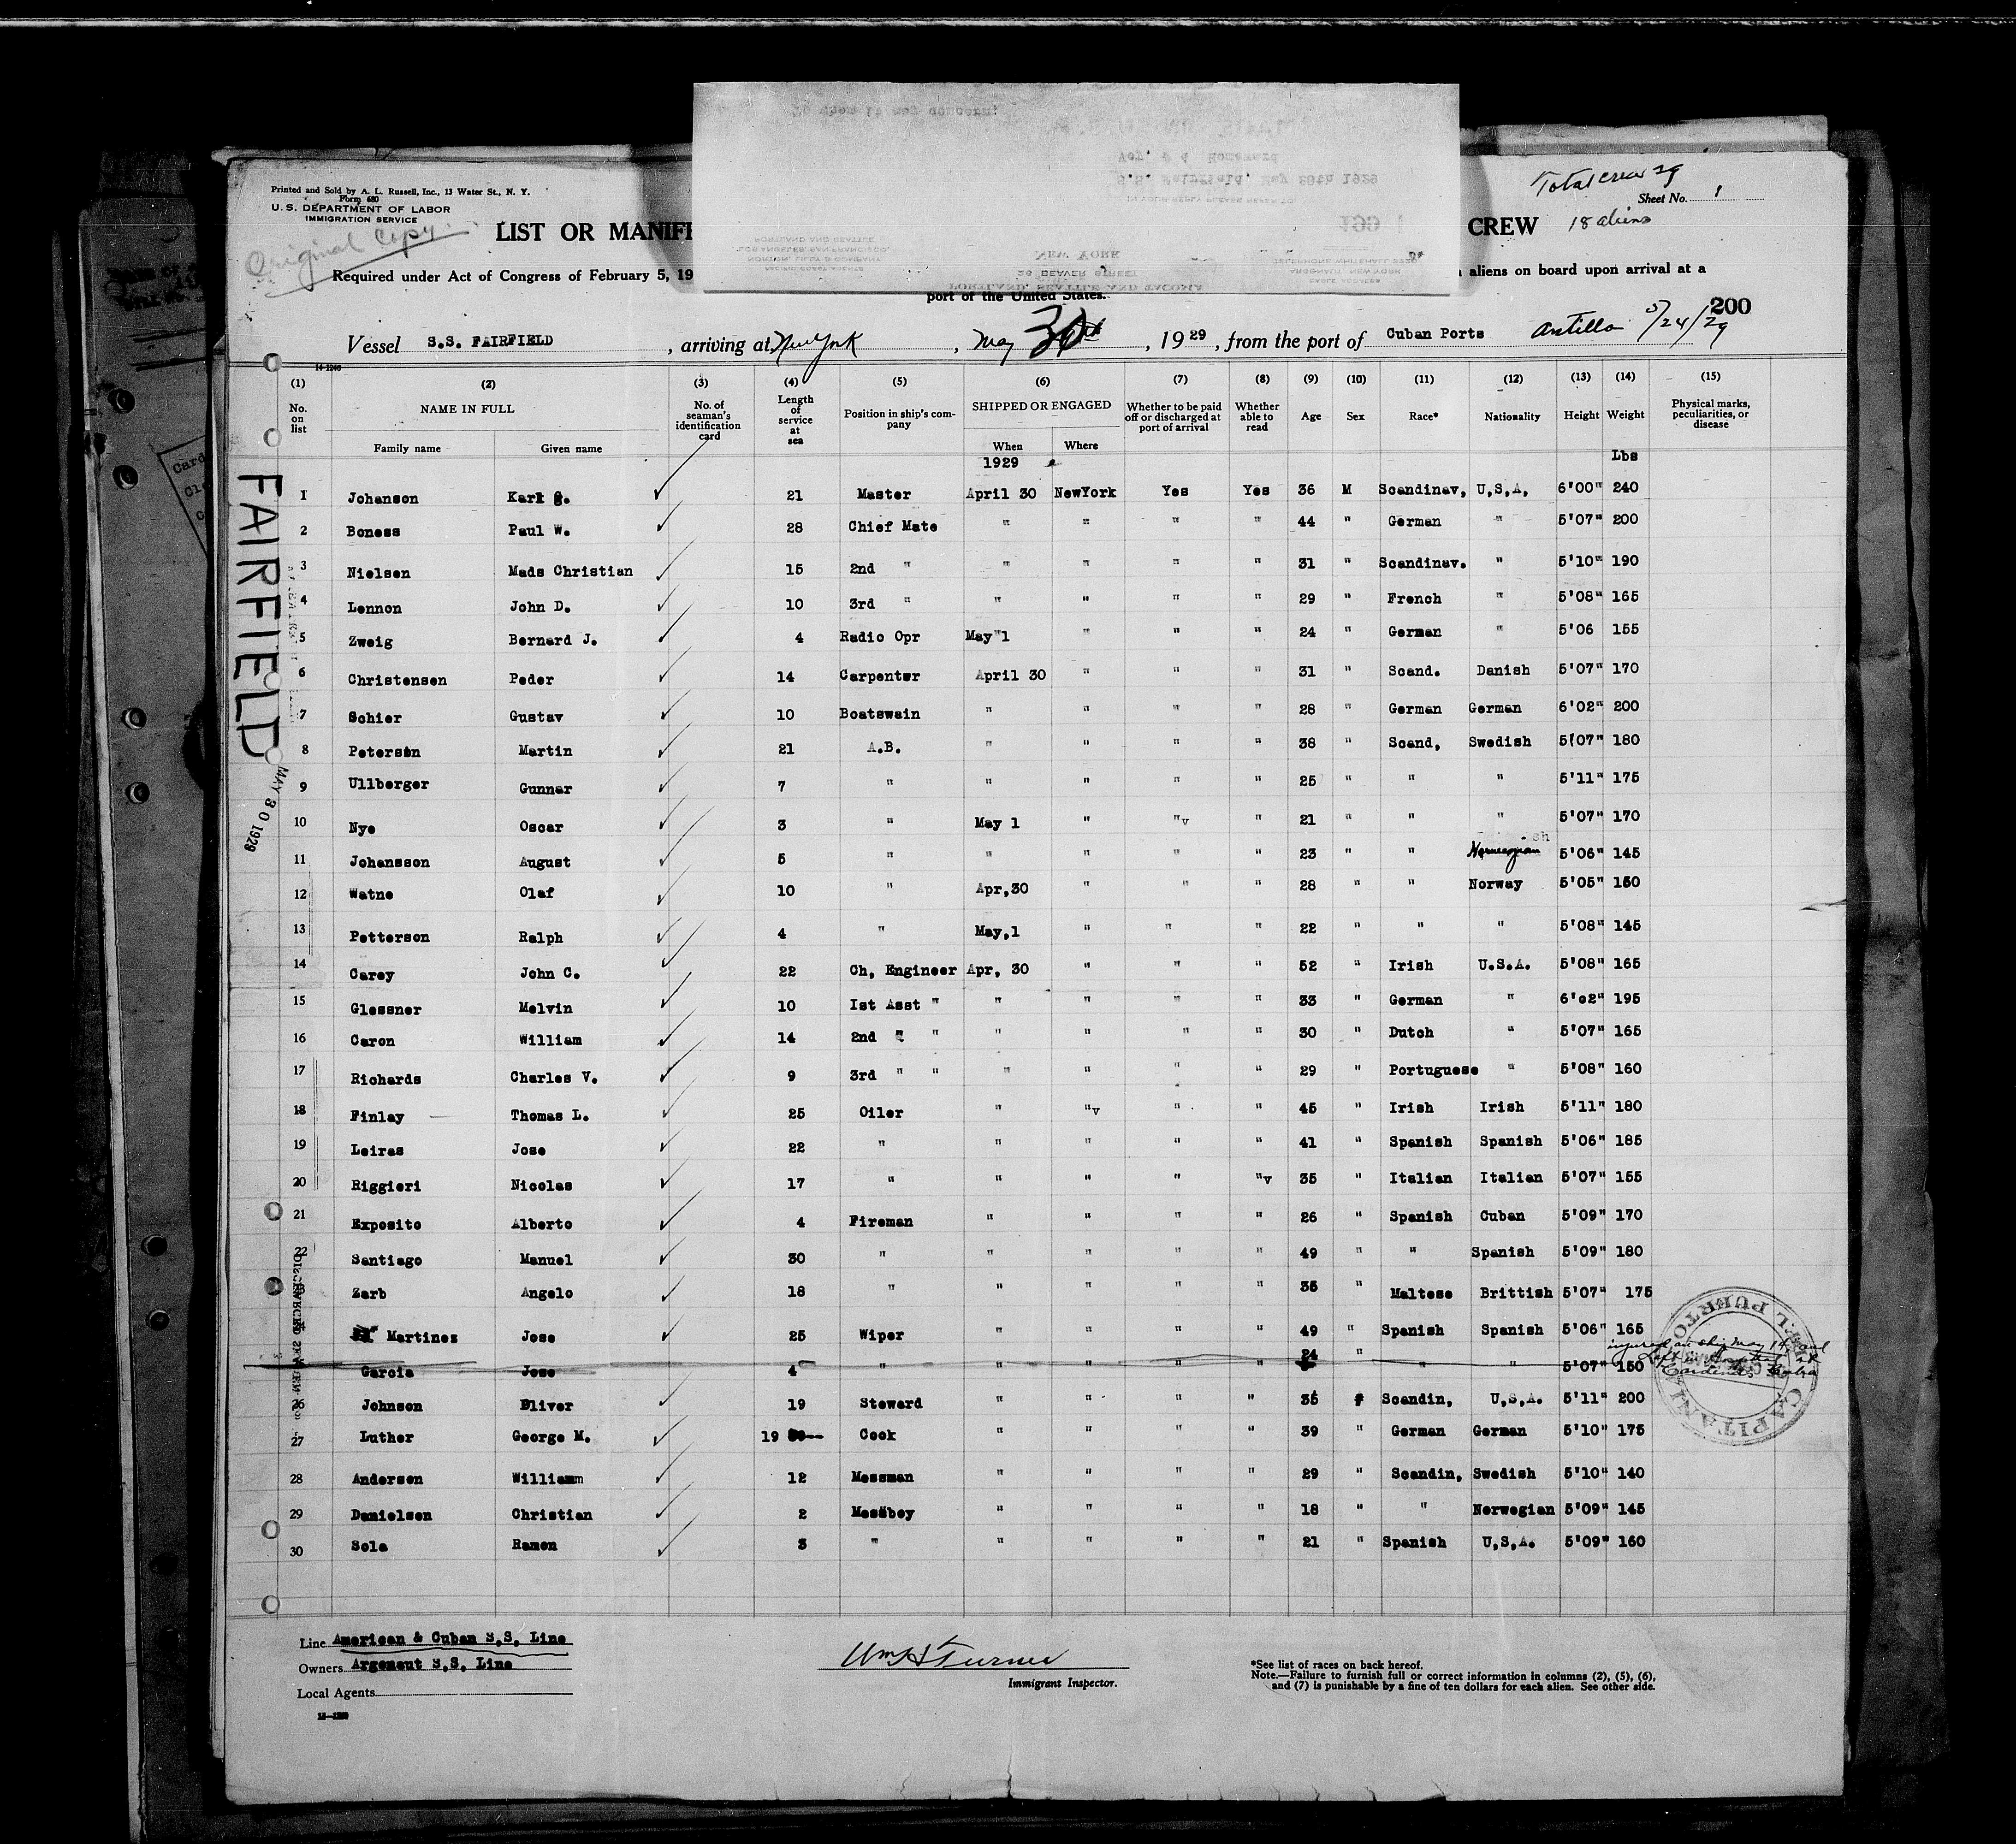 Total crew 29
Printed and Sold by A. L. Russell, Inc., 13 Water St., N. Y.
Form 680
U. S. DEPARTMENT OF LABOR
IMMIGRATION SERVICE
Original Copy.
Sheet No. 1
LIST OR MANIF
CREW 18 aliens
Required under Act of Congress of February 5, 19
aliens on board upon arrival at a
port of the United States.
200
Vessel S.S. FAIRFIELD, arriving at New York, May 30th, 1929, from the port of Cuban Ports Antilla 5/24/29
14-1240
(1) (2) (3) (4) (5) (6) (7) (8) (9) (10) (11) (12) (13) (14) (15)
No. on list NAME IN FULL No. of seaman's identification card Length of service at sea Position in ship's company SHIPPED OR ENGAGED Whether to be paid off or discharged at port of arrival Whether able to read Age Sex Race* Nationality Height Weight Physical marks, peculiarities, or disease
Family name Given name When Where
1929 Lbs
1 Johanson Karl G. 21 Master April 30 NewYork Yes Yes 36 M Scandinav, U,S,A, 6'00" 240
2 Boness Paul W. 28 Chief Mate " " " " 44 " German " 5'07" 200
3 Nielsen Mads Christian 15 2nd " " " " " 31 " Scandinav. " 5'10" 190
4 Lennon John D. 10 3rd " " " " " 29 " French " 5'08" 165
5 Zweig Bernard J. 4 Radio Opr May 1 " " " 24 " German " 5'06 155
6 Christensen Peder 14 Carpenter April 30 " " " 31 " Scand. Danish 5'07" 170
7 Schier Gustav 10 Boatswain " " " " 28 " German German 6'02" 200
8 Peterson Martin 21 A.B. " " " " 38 " Scand, Swedish 5'07" 180
9 Ullberger Gunnar 7 " " " " " 25 " " " 5'11" 175
10 Nye Oscar 3 " May 1 " "v " 21 " " " 5'07" 170
11 Johansson August 5 " " " " " 23 " " Norwegian 5'06" 145
12 Watne Olaf 10 " Apr,30 " " " 28 " " Norway 5'05" 150
13 Petterson Ralph 4 " May,1 " " " 22 " " " 5'08" 145
14 Carey John C. 22 Ch, Engineer Apr, 30 " " " 52 " Irish U.S.A. 5'08" 165
15 Glessner Melvin 10 Ist Asst " " " " " 33 " German " 6'02" 195
16 Caron William 14 2nd " " " " " " 30 " Dutch " 5'07" 165
17 Richards Charles V. 9 3rd " " " " " " 29 " Portuguese " 5'08" 160
18 Finlay Thomas L. 25 Oiler " "v " " 45 " Irish Irish 5'11" 180
19 Leiras Jose 22 " " " " " 41 " Spanish Spanish 5'06" 185
20 Riggieri Nicolas 17 " " " " "v 35 " Italian Italian 5'07" 155
21 Exposito Alberto 4 Fireman " " " " 26 " Spanish Cuban 5'09" 170
22 Santiago Manuel 30 " " " " " 49 " " Spanish 5'09" 180
Zarb Angelo 18 " " " " " 35 " Maltese Brittish 5'07" 175
Martinez Jose 25 Wiper " " " " 49 " Spanish Spanish 5'06" 165
Garcia Jose 4 " " " " " 24 " " " 5'07" 150 injured on ship May 14 and Left in Hospital at Cardenas Cuba
26 Johnson Oliver 19 Steward " " " " 35 " Scandin, U,S,A. 5'11" 200
27 Luther George M. 19 Cook " " " " 39 " German German 5'10" 175
28 Andersen Williamm 12 Messman " " " " 29 " Scandin, Swedish 5'10" 140
29 Danielsen Christian 2 Messboy " " " " 18 " " Norwegian 5'09" 145
30 Sola Ramon 3 " " " " " 21 " Spanish U,S,A. 5'09" 160
FAIRFIELD
MAY 30 1929
CAPITANIA DEL PUERTO
Line American & Cuban S,S, Line
Owners Argonaut S,S, Line
Local Agents
Wm H Turner
Immigrant Inspector.
*See list of races on back hereof.
Note.—Failure to furnish full or correct information in columns (2), (5), (6),
and (7) is punishable by a fine of ten dollars for each alien. See other side.